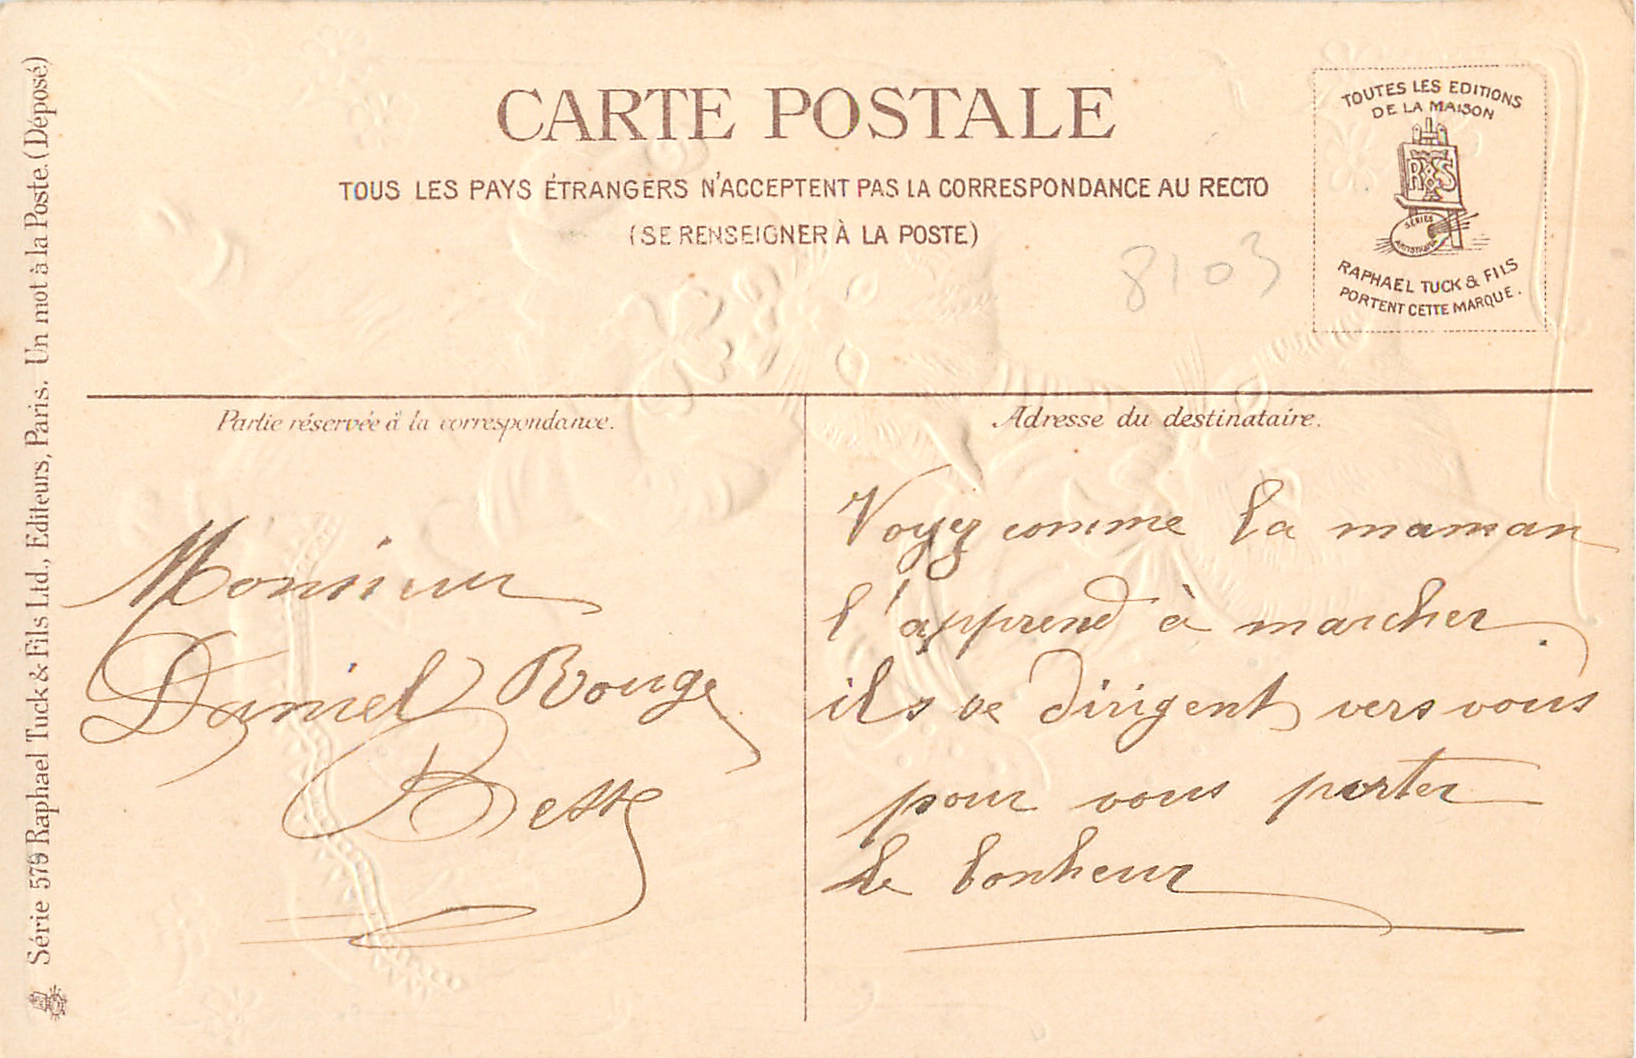 CARTE POSTALE
TOUS LES PAYS ÉTRANGERS N'ACCEPTENT PAS LA CORRESPONDANCE AU RECTO
(SE RENSEIGNER À LA POSTE)
8103
TOUTES LES EDITIONS
DE LA MAISON
R & S
SERIES
ARTISTIQUE
RAPHAEL TUCK & FILS
PORTENT CETTE MARQUE.
Série 579 Raphael Tuck & Fils Ltd., Editeurs, Paris. Un mot à la Poste. (Déposé)
Partie réservée à la correspondance.
Monsieur
Daniel Rouge
Bess
Adresse du destinataire.
Voyez comme la maman
l'apprend à marcher.
ils se dirigent vers vous
pour vous porter
le bonheur